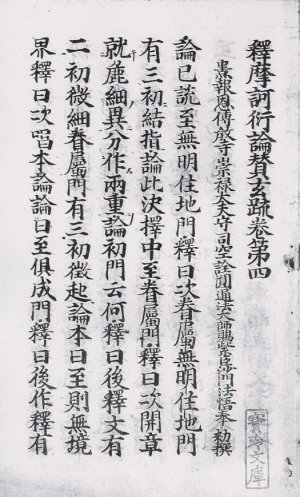 釋摩訶衍論賛玄疏卷第四
中京報恩傳教寺崇禄大夫守司空詮圓通法大師賜紫臣沙門法悟奉　勅撰
論已説至無明住地門釋曰次眷屬無明住地門
有三初結指論此決擇中至眷屬門釋曰次開章
就麁細異分作兩重論初門云何釋曰後釋文有
二初微細眷屬門有三初徵起論本曰至則無境
界釋曰次唱本論論曰至俱成門釋曰後作釋有
寶玲文庫